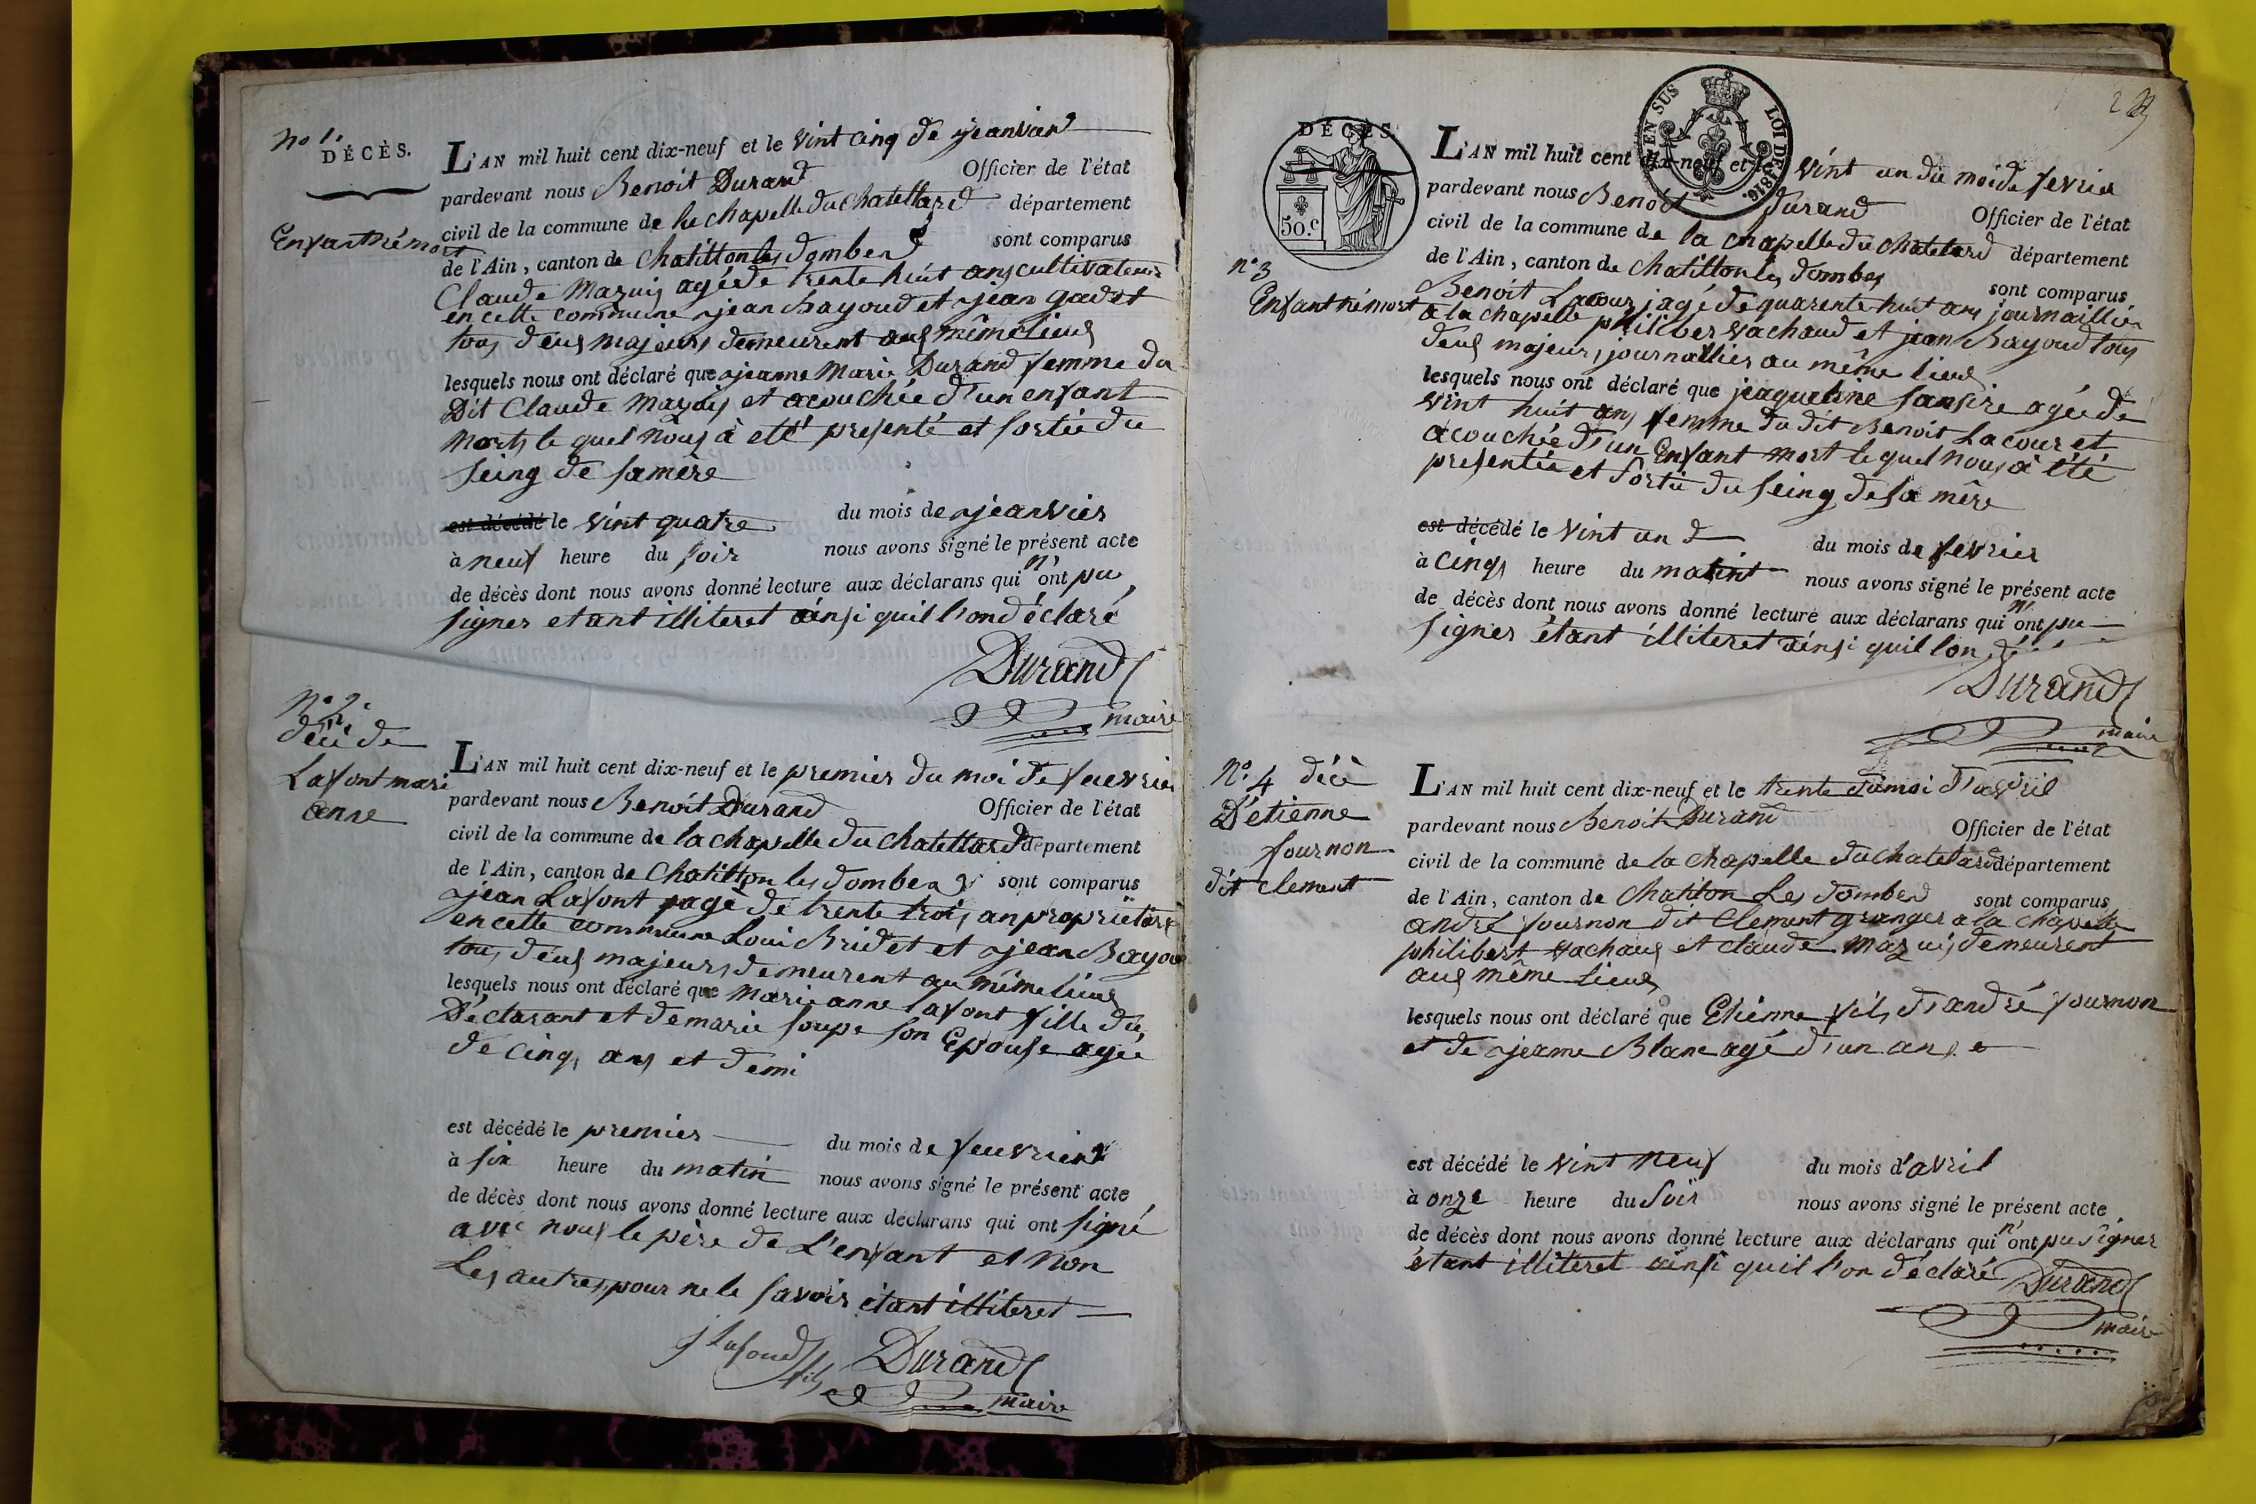 no 1.
DÉCÈS.
Enfant né mort
L'AN mil huit cent dix-neuf et le vint cinq de jeanvier
pardevant nous Benoit Durand Officier de l'état
civil de la commune de la chapelle du chatellard département
de l'Ain, canton de Chatitton les dombes sont comparus
Claude Mazuis agé de trente huit ans cultivateur
en cette commune jean bayoud et jean gadet
tous deus majeurs demeurent aus même lieus
lesquels nous ont déclaré que jeanne Marie Durand femme du
Dit Claude Mazuis et acouchée d'un enfant
Mort, le quel nous à eté presenté et sortie du
seing de sa mère
est décédé le vint quatre du mois de jeanvier
à neuf heure du soir nous avons signé le présent acte
de décès dont nous avons donné lecture aux déclarans qui n'ont pu
signer etant illiteret ainsi quil l'on déclaré
Durand
maire
No 2.
déci de
Lafont mari
anne
L'AN mil huit cent dix-neuf et le premier du moi de feuvrier
pardevant nous Benoit Durand Officier de l'état
civil de la commune de la chapelle du chatellard département
de l'Ain, canton de Chatitton les dombes sont comparus
jean Lafont agé de trente trois an propriëtère
en cette commune Loui Bridet et jean Bayou
tous deus majeurs demeurent au même lieus
lesquels nous ont déclaré que Marie anne lafont fille du
Déclarant et de marie soupe son Epouse agée
de cinq ans et demi
est décédé le premier du mois de feuvrier
à six heure du matin nous avons signé le présent acte
de décès dont nous avons donné lecture aux déclarans qui ont signé
avec nous le père de L'enfant et non
Les autres pour ne le savoir étant illiteret
j lafond fils Durand
maire
DÉCÈS.
50.c
EN SUS LOI DE 1816.
n° 3
Enfant né mort
L'AN mil huit cent dix-neuf et le vint un du moi de fevrier
pardevant nous Benoit Durand Officier de l'état
civil de la commune de la chapelle du chatelard département
de l'Ain, canton de Chatitton les dombes sont comparus
Benoit Lacour agé de quarente huit ans journaillier
a la chapelle philiber vachaud et jean bayoud tous
deus majeurs journallier au même lieus
lesquels nous ont déclaré que jeaqueline sansire agée de
vint huit ans femme du dit Benoit Lacour et
acouchée d'un Enfant mort le quel nous à été
presentée et sortie du seing de sa mère
est décédé le vint un du mois de fevrier
à cinq heure du matint nous avons signé le présent acte
de décès dont nous avons donné lecture aux déclarans qui n'ont pu
signer étant illiteret ainsi quil lon
Durand
maire
No. 4 décè
D'étienne
fournon
dit clement
L'AN mil huit cent dix-neuf et le trente du moi d'avril
pardevant nous Benoit Durand Officier de l'état
civil de la commune de la chapelle du chatelard département
de l'Ain, canton de Chatilon Les dombes sont comparus
andré fournon dit Clement granger a la chapelle
philibert vachaus et claude Mazuis demeurent
aus même lieus
lesquels nous ont déclaré que Etienne fils d'andré fournon
et de jeanne Blanc agé d'un an
est décédé le vint neuf du mois d'avril
à onze heure du soir nous avons signé le présent acte
de décès dont nous avons donné lecture aux déclarans qui n'ont pu signer
étant illiteret ainsi quil l'on déclaré Durand
maire